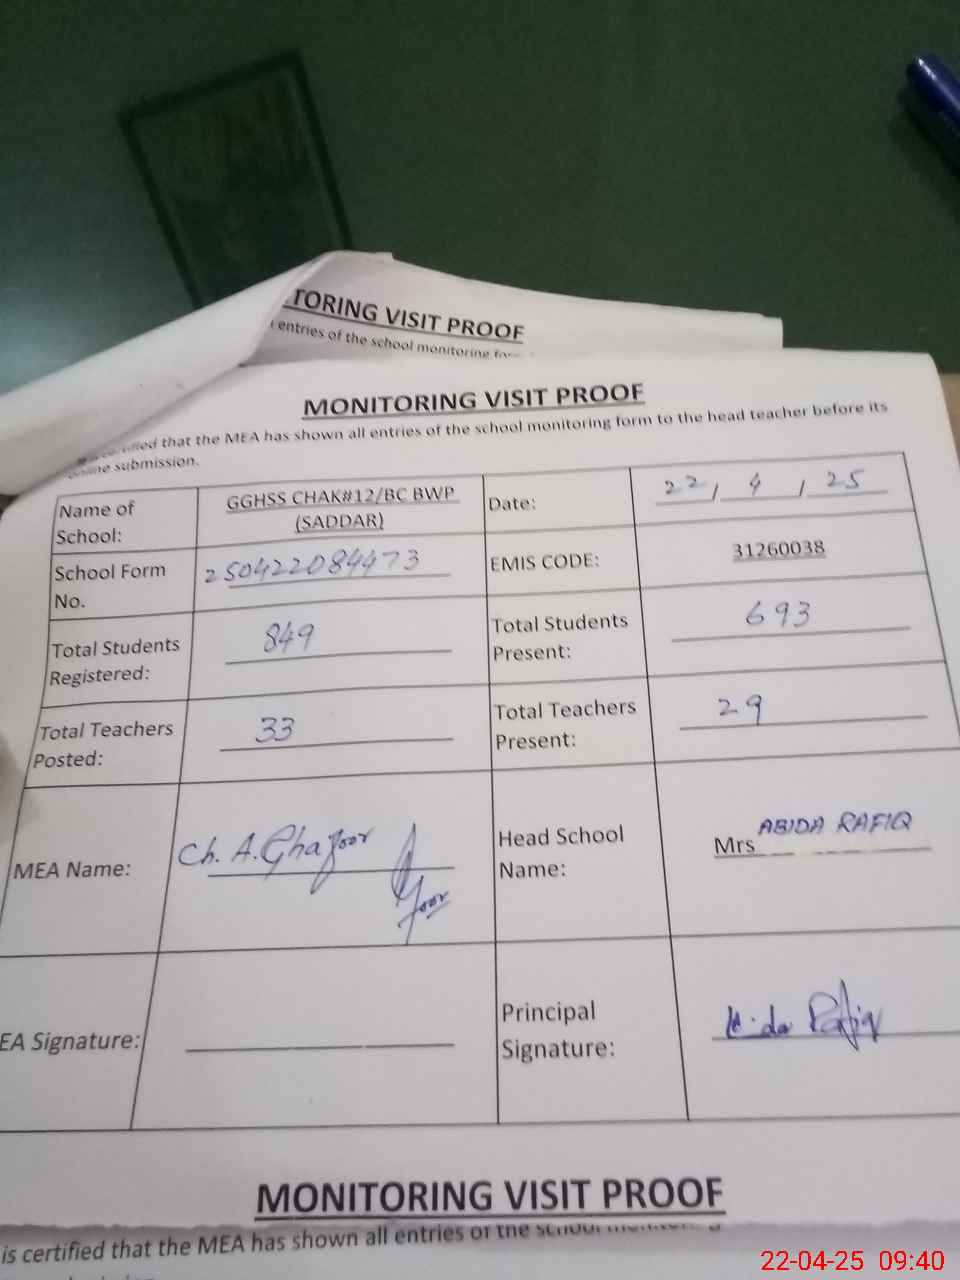 TORING VISIT PROOF
entries of the school monitoring
MONITORING VISIT PROOF
certified that the MEA has shown all entries of the school monitoring form to the head teacher before its
online submission.
Name of School: GGHSS CHAK#12/BC BWP (SADDAR) Date: 22/4/25
School Form No. 250422084473 EMIS CODE: 31260038
Total Students Registered: 849 Total Students Present: 693
Total Teachers Posted: 33 Total Teachers Present: 29
MEA Name: Ch. A. Ghafoor Head School Name: Mrs ABIDA RAFIQ
EA Signature: Principal Signature: Rafiq
MONITORING VISIT PROOF
is certified that the MEA has shown all entries of the school
22-04-25 09:40